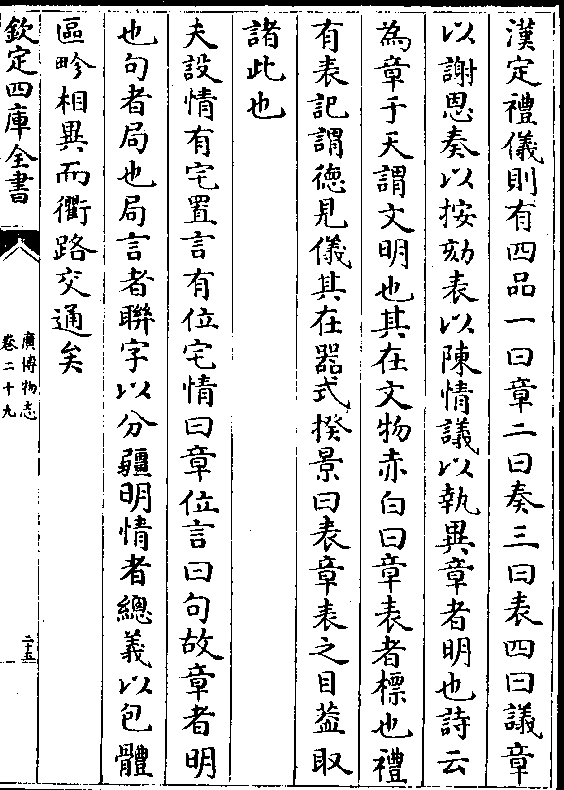 漢定禮儀則有四品一曰章二曰奏三曰表四曰議章
以謝恩奏以按劾表以陳情議以執異章者明也詩云
為章于天謂文明也其在文物赤白曰章表者標也禮
有表記謂德見儀其在器式揆景曰表章表之目葢取
諸此也
夫設情有宅置言有位宅情曰章位言曰句故章者明
也句者局也局言者聯字以分疆明情者總義以包體
區畛相異而衢路交通矣
欽定四庫全書
廣博物志
卷二十九
二十五